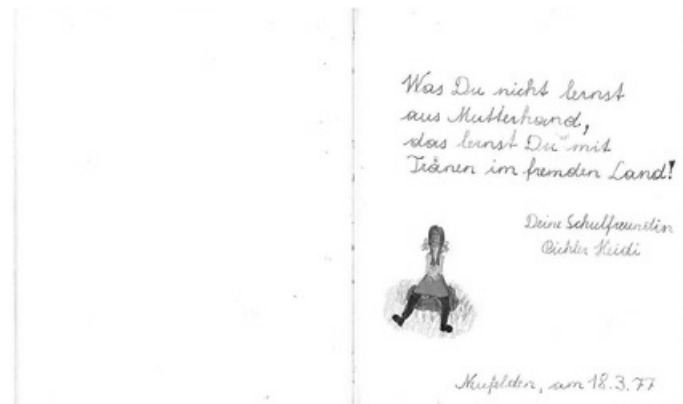 Was Du nicht lernst
aus Mutterhand,
das lernst Du mit
Tränen im fremden Land!
Deine Schulfreundin
Pichler Heidi
Neufelden, am 18.3.77